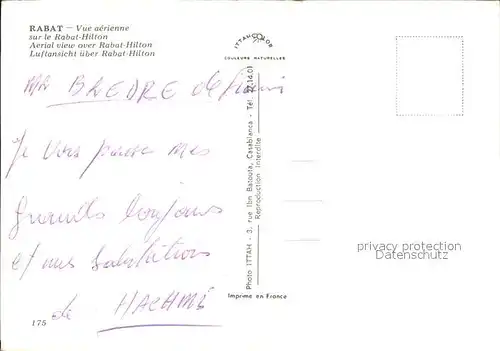 RABAT — Vue aérienne
sur le Rabat-Hilton
Aerial view over Rabat-Hilton
Luftansicht über Rabat-Hilton
ITTAH COLOR
COULEURS NATURELLES
Mr BREDRE
Je vous passe mes
et mes
de HACHMI
175
Photo ITTAH - 3, rue Ibn Batouta, Casablanca - Tél. 27.14.01
Reproduction Interdite
Imprimé en France
privacy protection
watermark